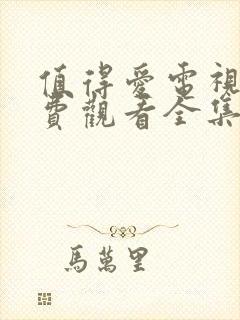 值得愛電視
費觀看全集
馬萬里